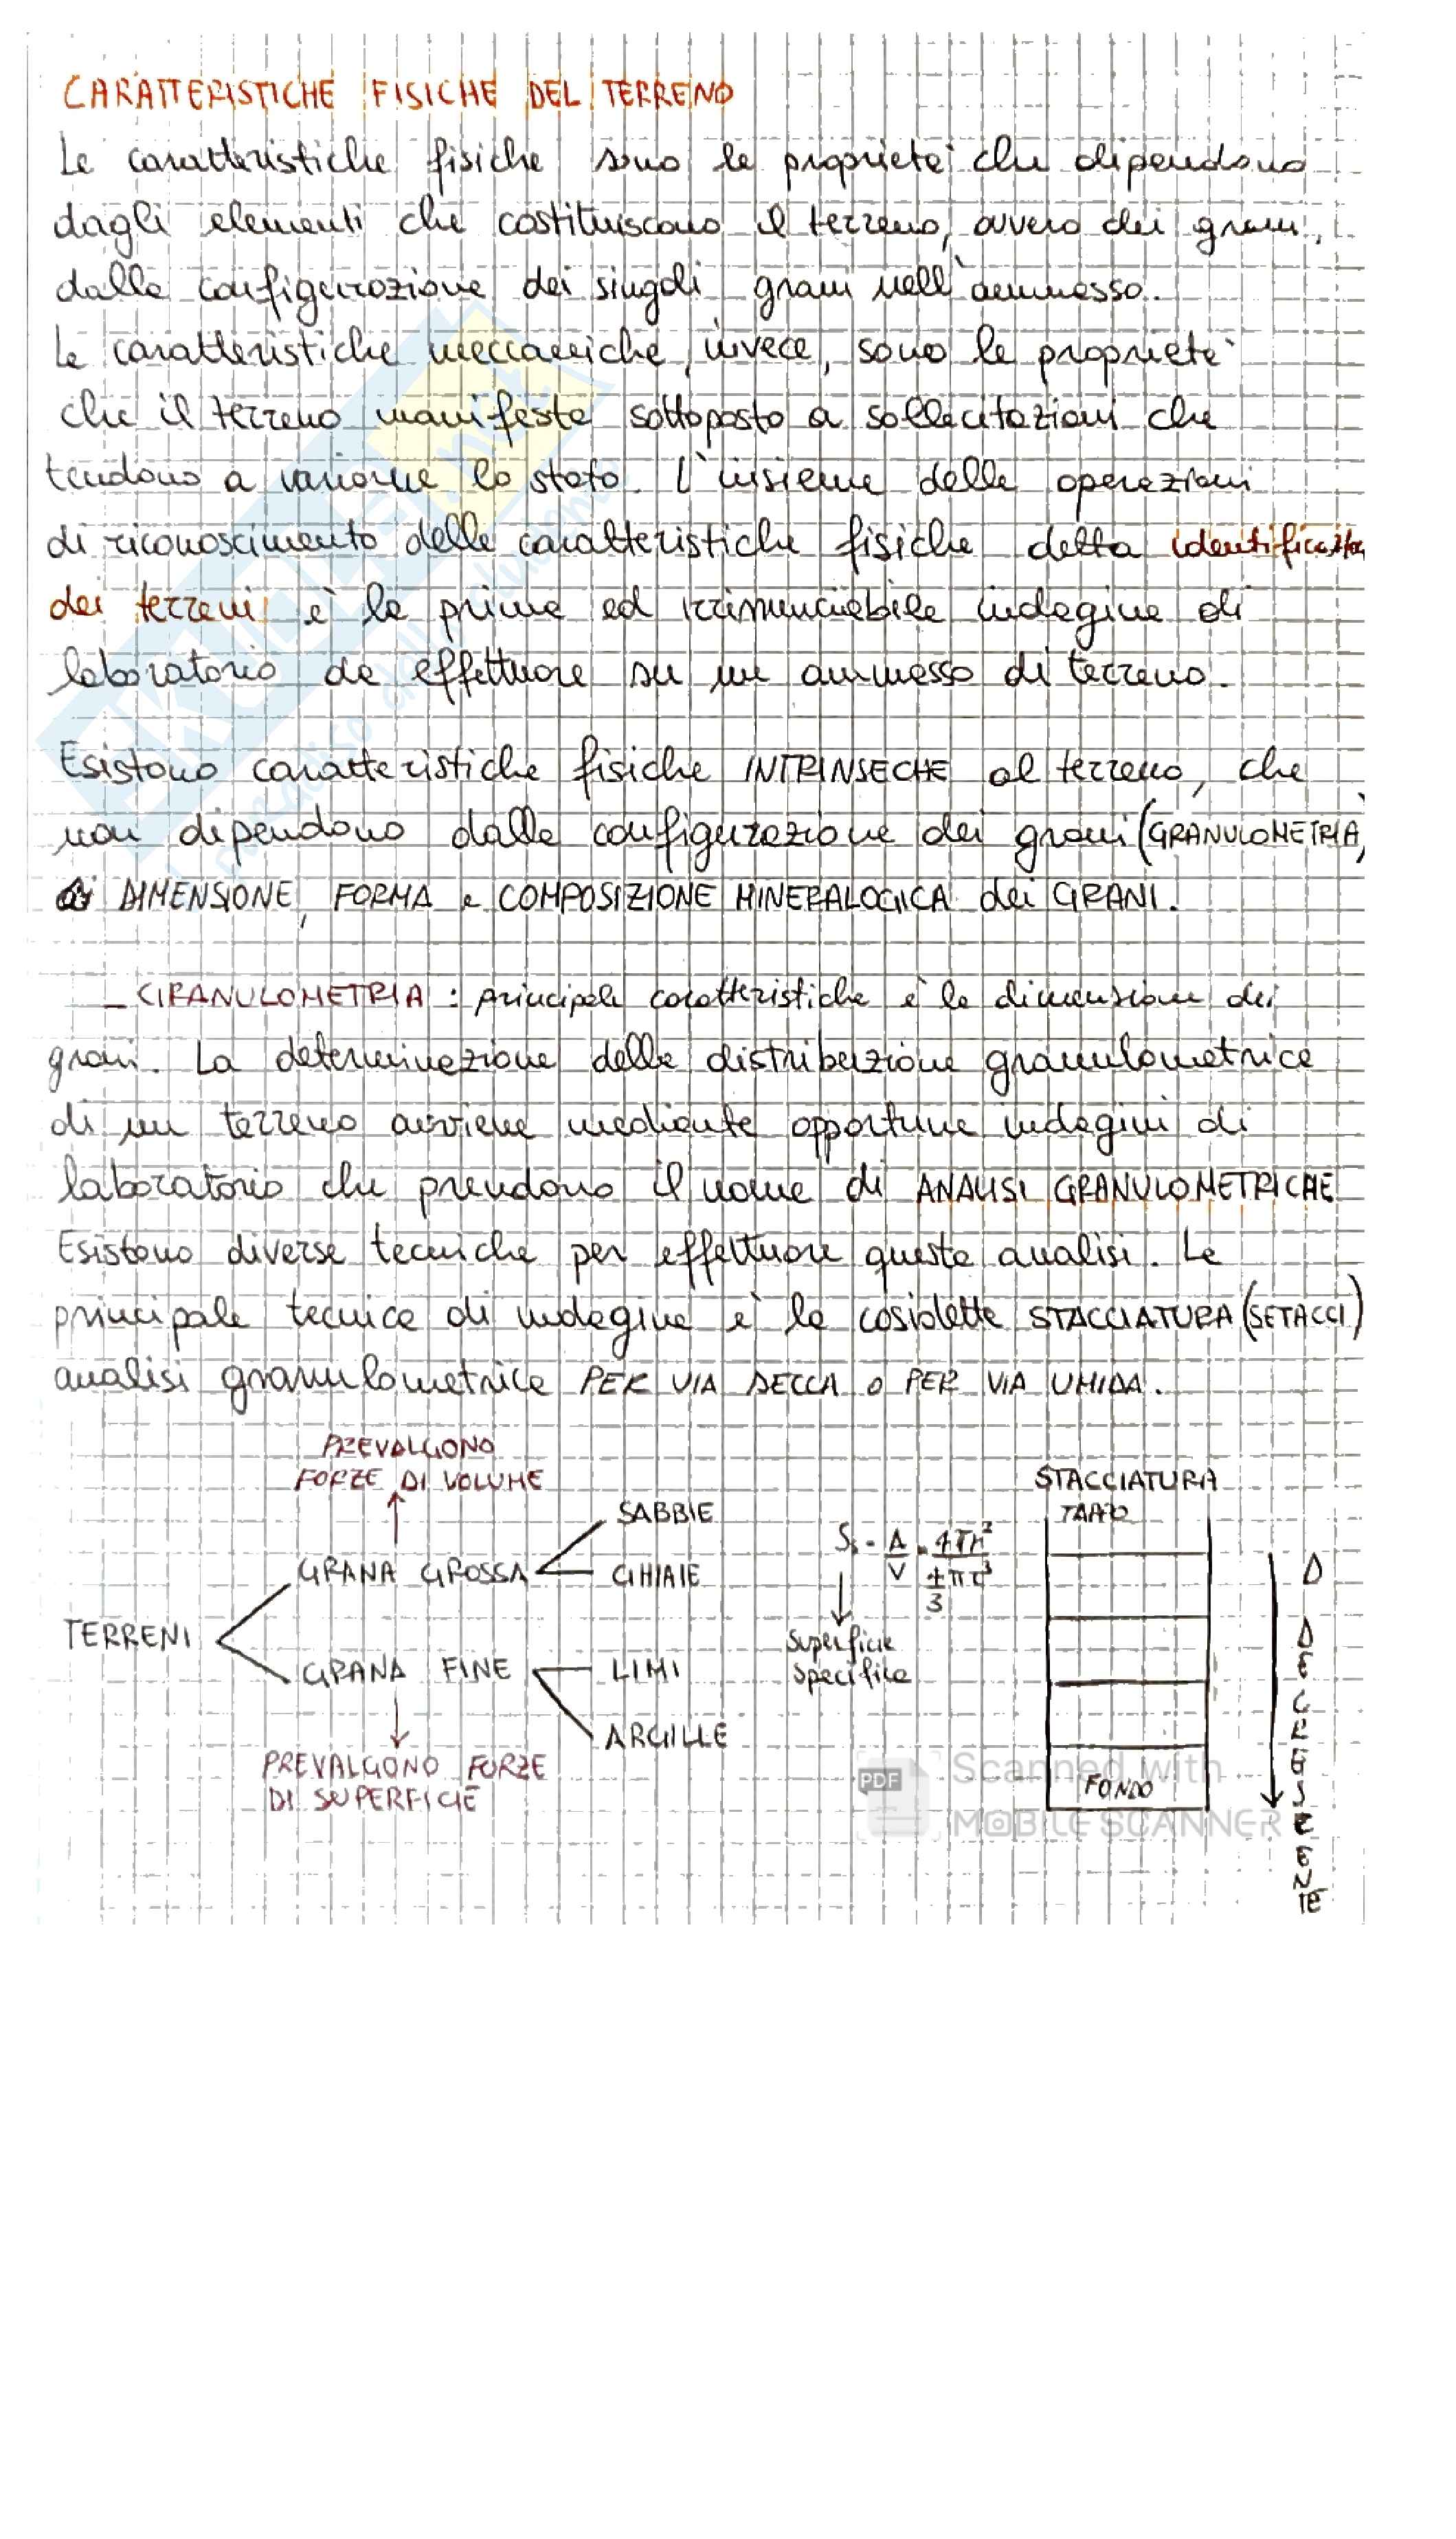 CARATTERISTICHE FISICHE DEL TERRENO
Le caratteristiche fisiche sono le proprietà che dipendono
dagli elementi che costituiscono il terreno, ovvero dei grani,
dalla configurazione dei singoli grani nell'ammasso.
Le caratteristiche meccaniche, invece, sono le proprietà
che il terreno manifesta sottoposto a sollecitazioni che
tendono a variarne lo stato. L'insieme delle operazioni
di riconoscimento delle caratteristiche fisiche detta
dei terreni è la prima ed irrinunciabile indagine di
laboratorio da effettuare su un ammasso di terreno.
Esistono caratteristiche fisiche INTRINSECHE al terreno, che
non dipendono dalla configurazione dei grani (GRANULOMETRIA,
DIMENSIONE, FORMA e COMPOSIZIONE MINERALOGICA dei GRANI.
_ GRANULOMETRIA : principale caratteristica è la dimensione dei
grani. La determinazione della distribuzione granulometrica
di un terreno avviene mediante opportune indagini di
laboratorio che prendono il nome di ANALISI GRANULOMETRICHE
Esistono diverse tecniche per effettuare questa analisi. La
principale tecnica di indagine è la cosidetta STACCIATURA (SETACCI)
analisi granulometrica PER VIA SECCA o PER VIA UMIDA.
PREVALGONO
FORZE DI VOLUME
STACCIATURA
SABBIE
GRANA GROSSA
GHIAIE
S_s = A/V = 4πr²/(4/3 πr³)
D DECRESCENTE
TERRENI
Superficie
specifica
GRANA FINE
LIMI
ARGILLE
PREVALGONO FORZE
DI SUPERFICIE
FONDO
Scanned with
MOBILE SCANNER
PDF